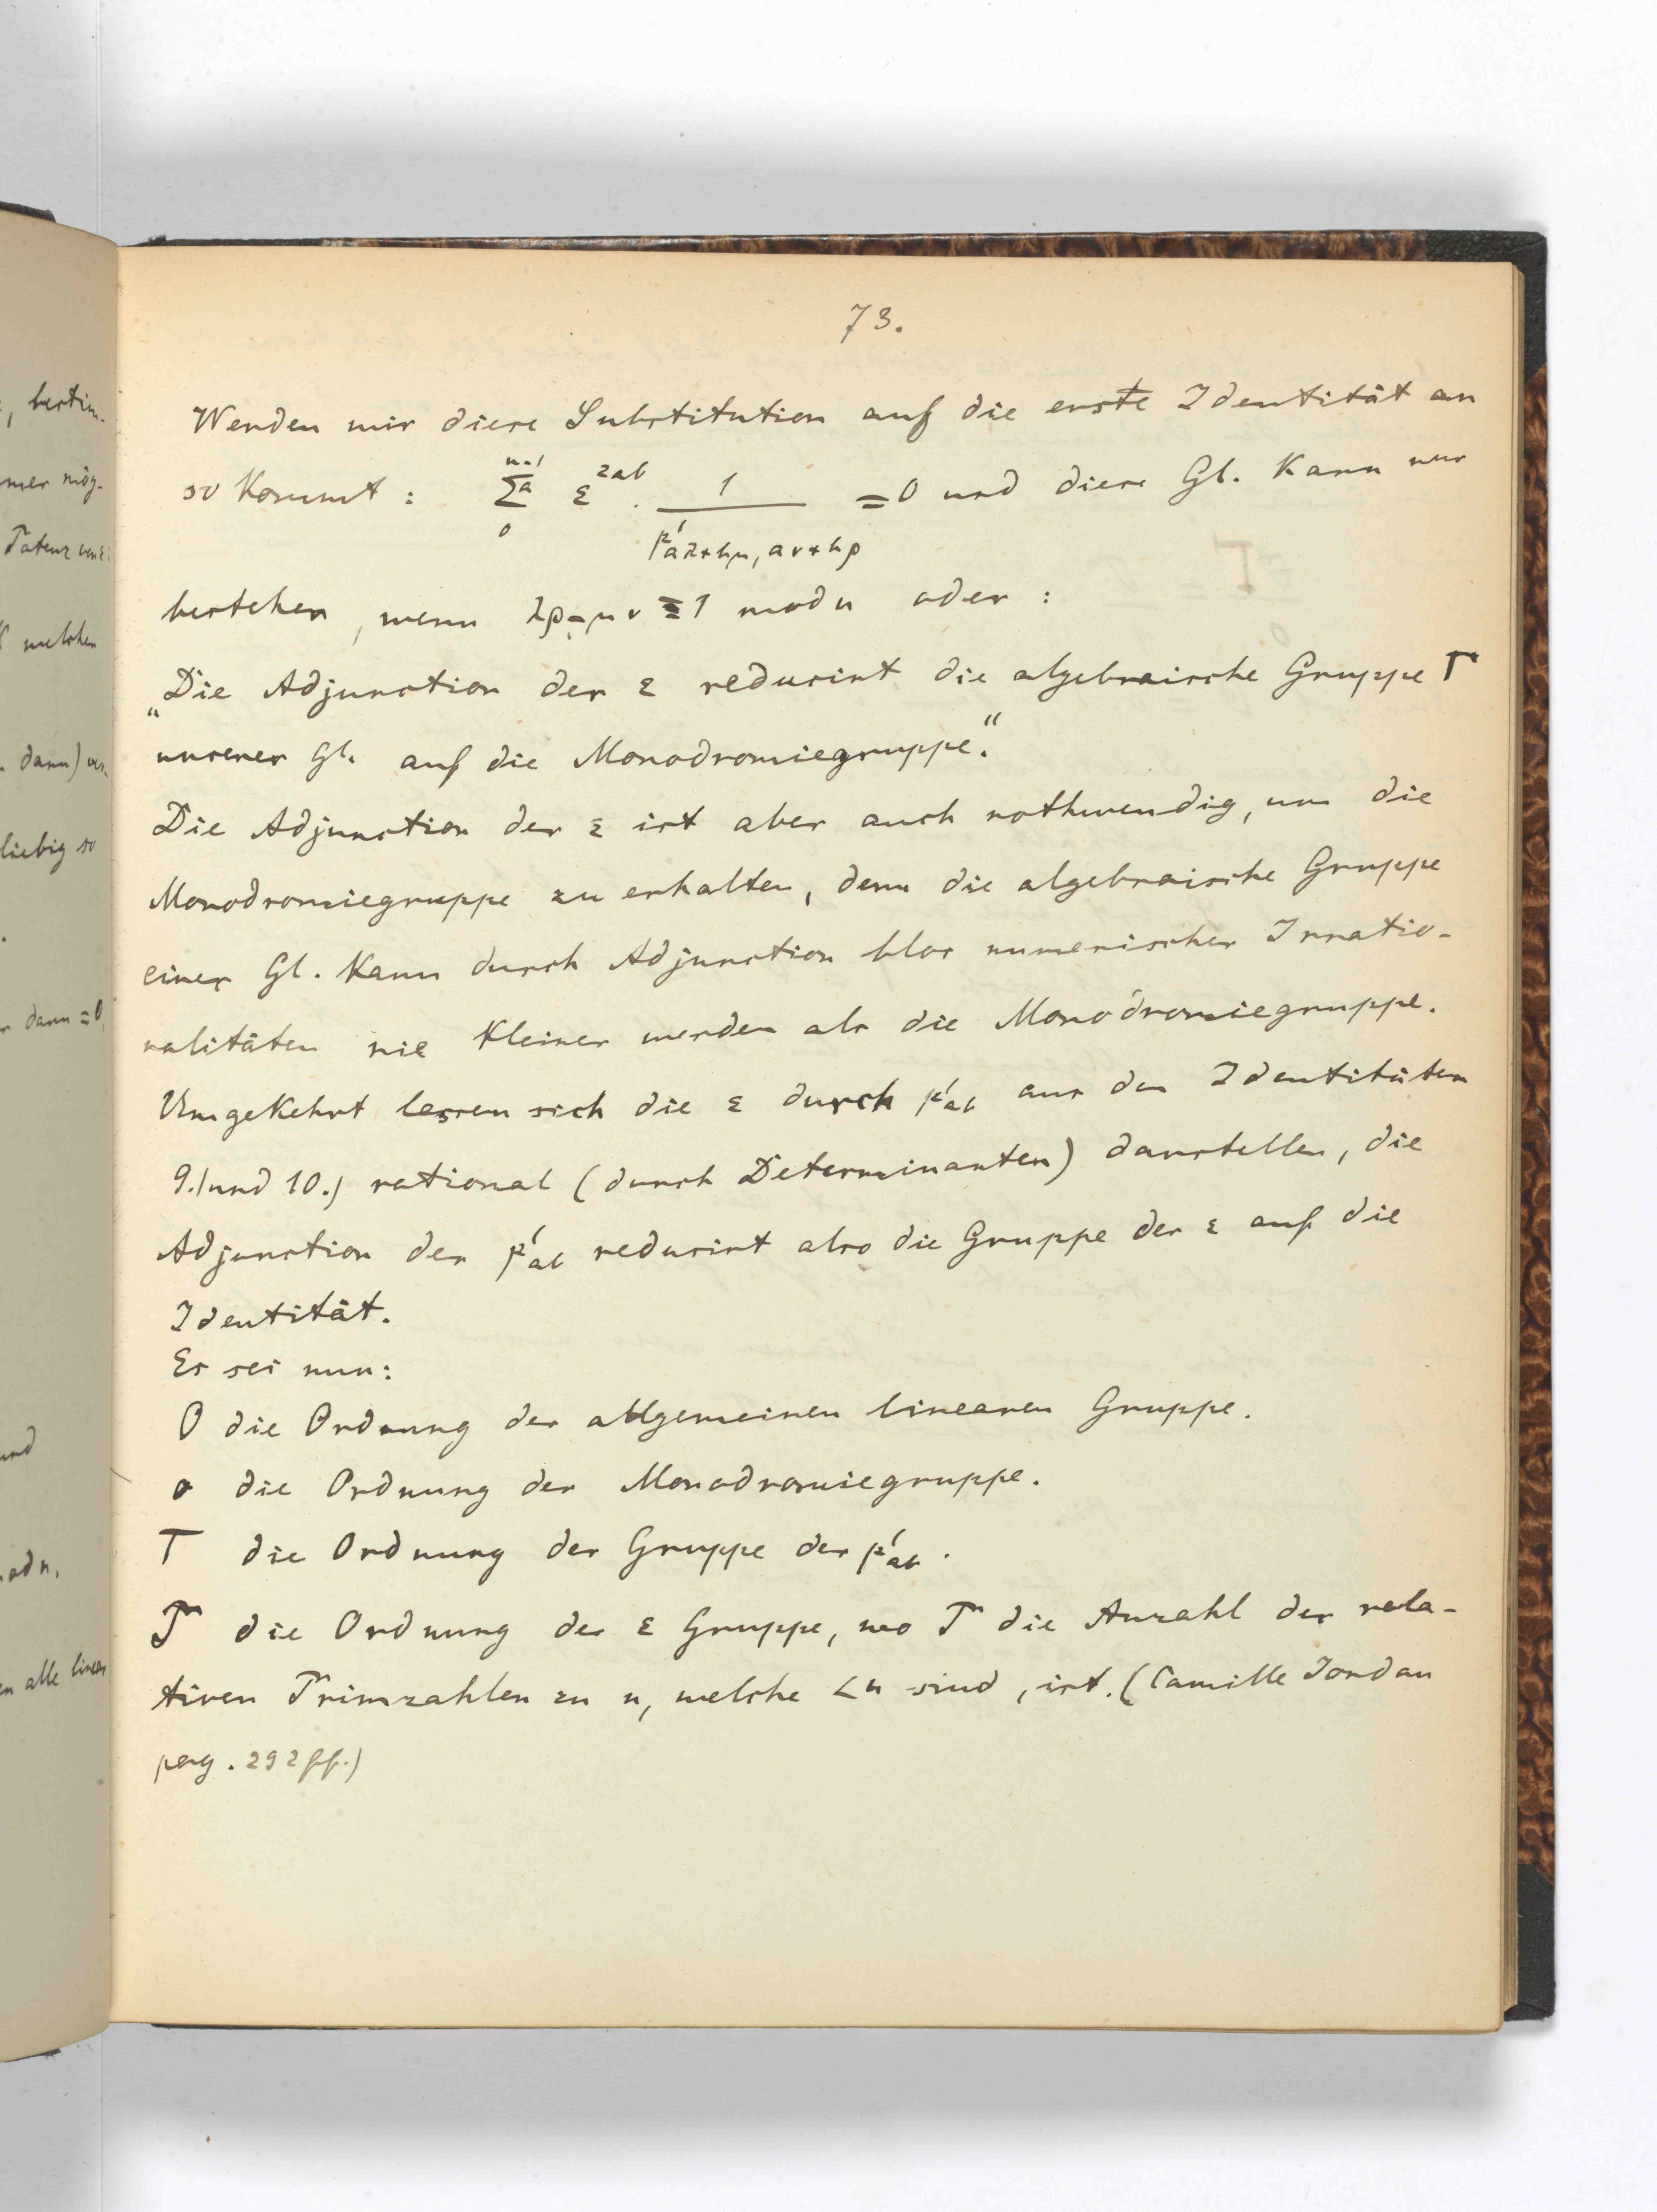 73.
Wenden wir diese Substitution auf die erste Identität an
so kommt: \sum_{0}^{n-1}{}_{a} ε^{2ab} \cdot \frac{1}{p'_{aλ+bμ, aν+bρ}} = 0 und diese Gl. kann nur
bestehen, wenn λρ-μν ≡ 1 mod n oder:
„Die Adjunction der ε reducirt die algebraische Gruppe Γ
unserer Gl. auf die Monodromiegruppe.“
Die Adjunction der ε ist aber auch nothwendig, um die
Monodromiegruppe zu erhalten, denn die algebraische Gruppe
einer Gl. kann durch Adjunction blos numerischer Irratio-
nalitäten nie kleiner werden als die Monodromiegruppe.
Umgekehrt lassen sich die ε durch p'ab aus den Identitäten
9.) und 10.) rational (durch Determinanten) darstellen, die
Adjunction der p'ab reducirt also die Gruppe der ε auf die
Identität.
Es sei nun:
O die Ordnung der allgemeinen linearen Gruppe.
o die Ordnung der Monodromiegruppe.
T die Ordnung der Gruppe der p'ab.
P die Ordnung der ε Gruppe, wo P die Anzahl der rela-
tiven Primzahlen zu n, welche < n sind, ist. (Camille Jordan
pag. 292 ff.)